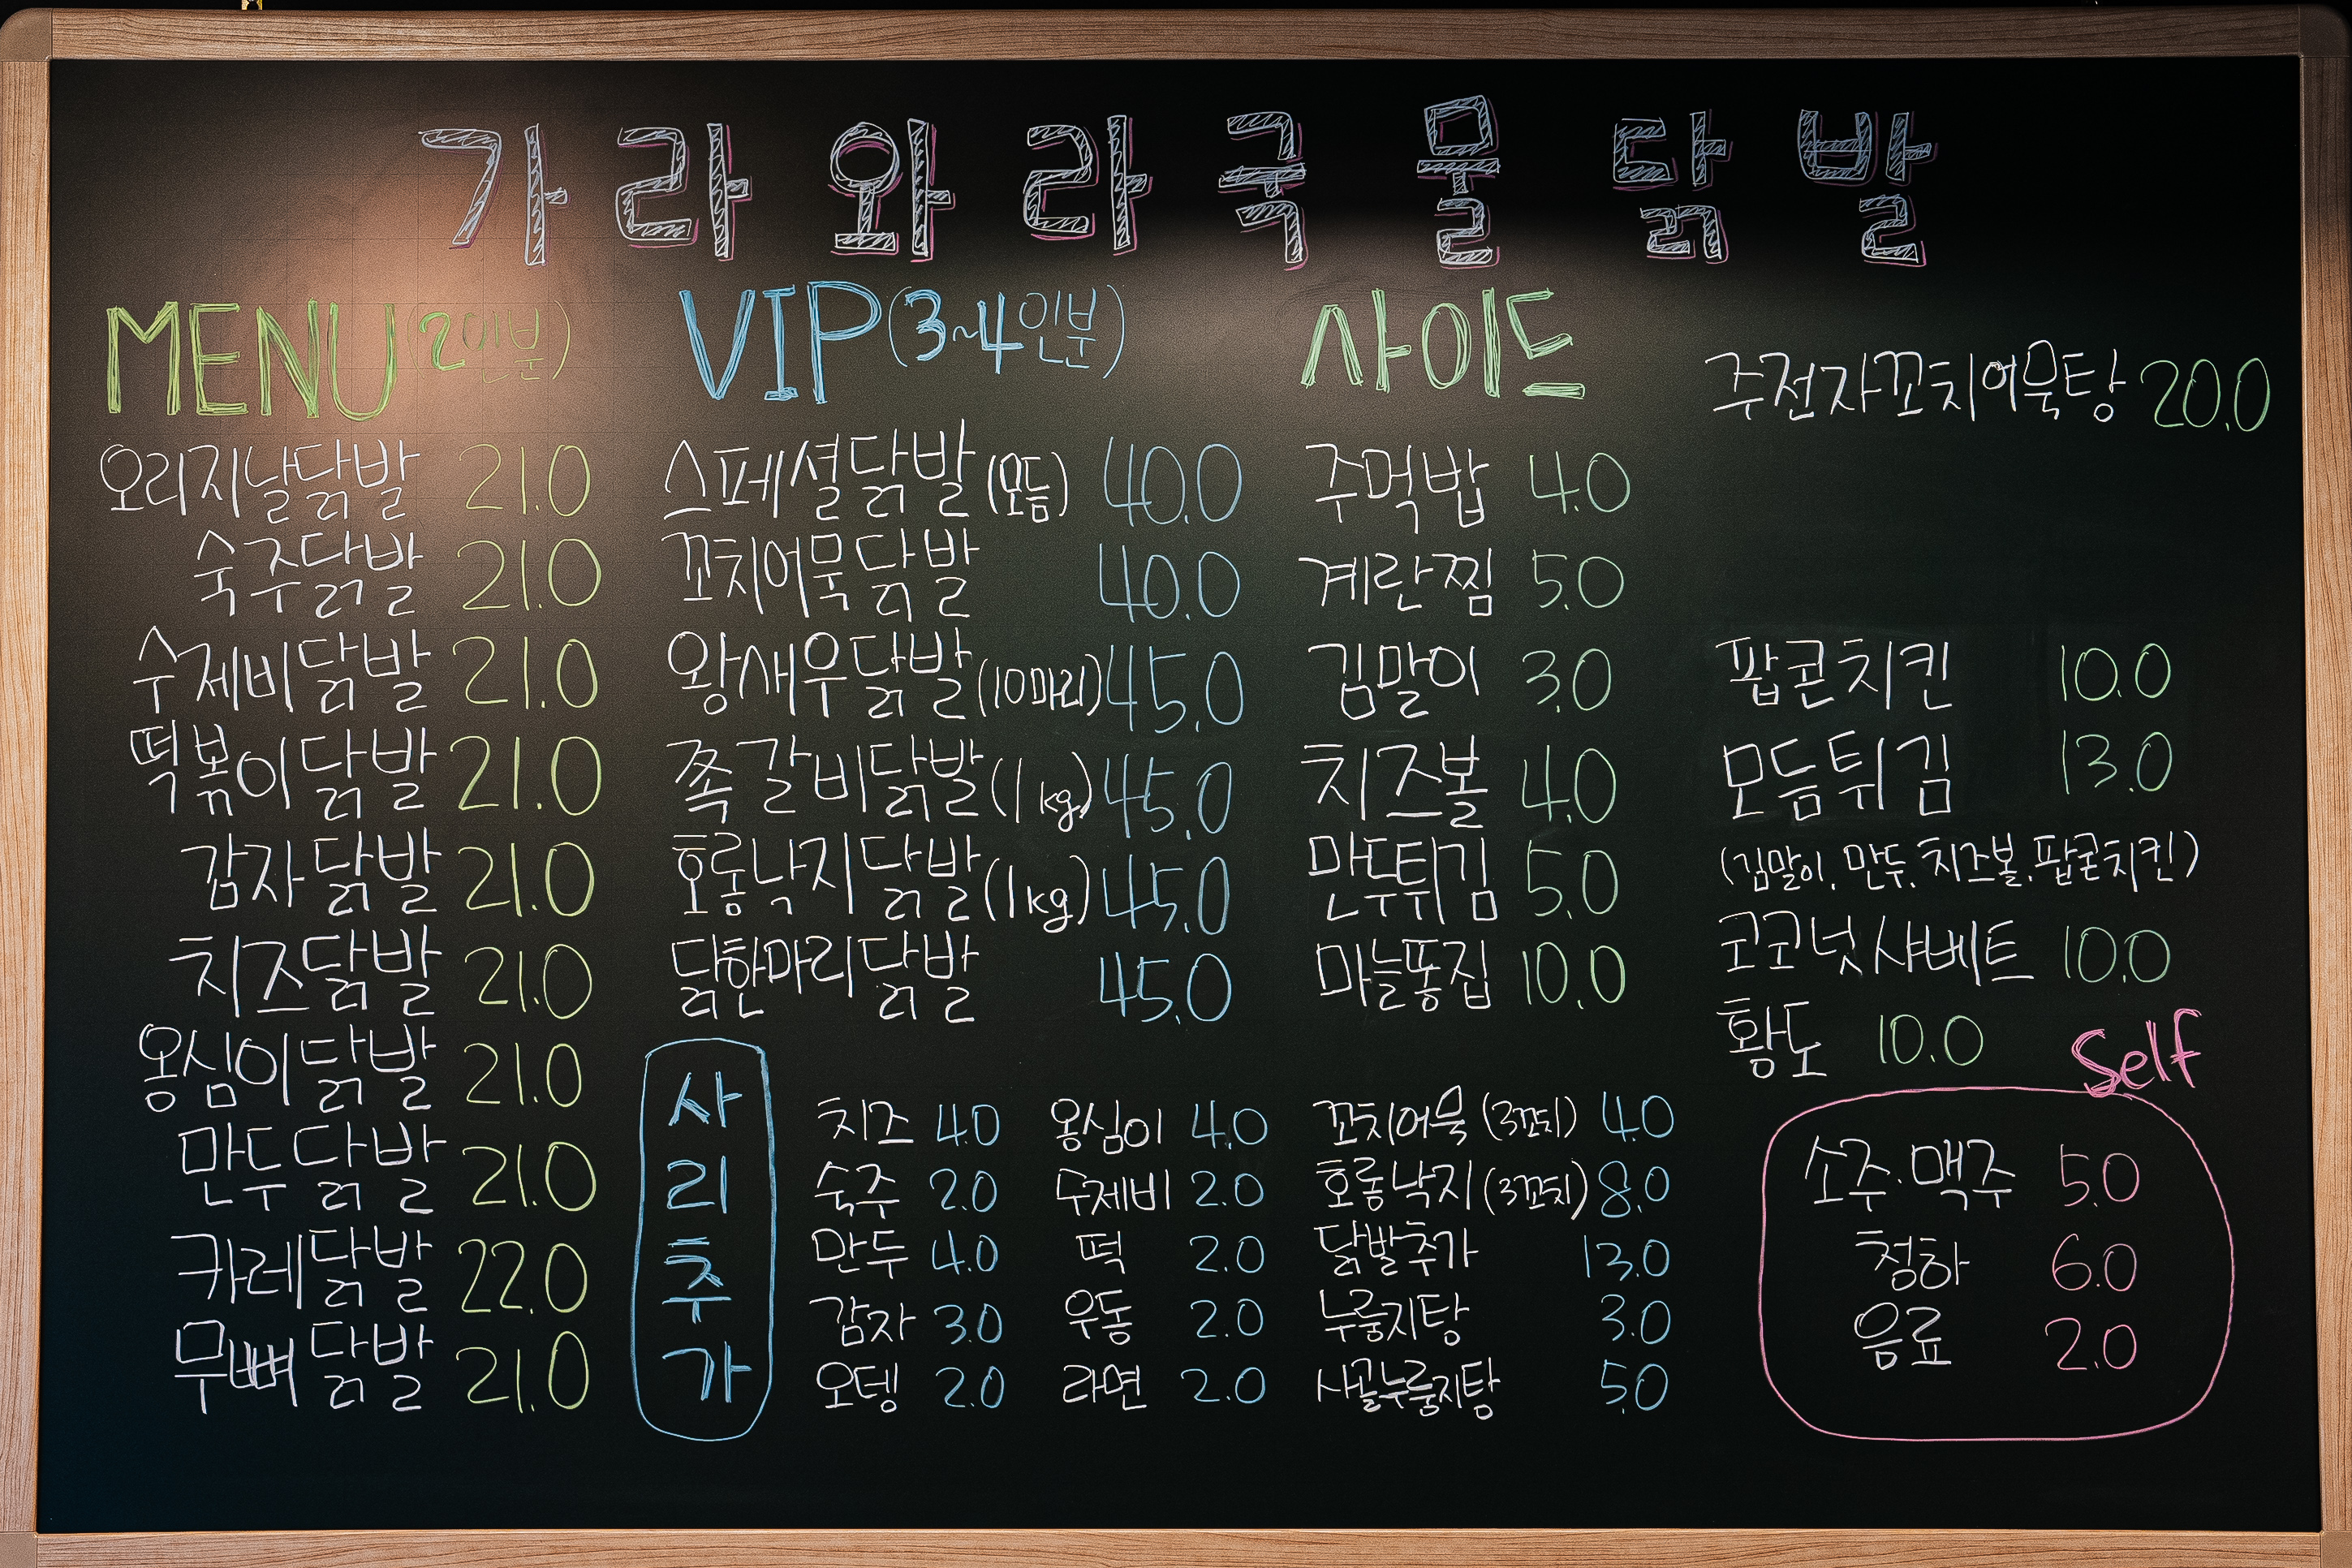 가라와라국물닭발
MENU (2인분)
오리지날닭발 21.0
숙주닭발 21.0
수제비닭발 21.0
떡볶이닭발 21.0
감자닭발 21.0
치즈닭발 21.0
옹심이닭발 21.0
만두닭발 21.0
카레닭발 22.0
무뼈닭발 21.0
VIP (3~4인분)
스페셜닭발 (모듬) 40.0
꼬치어묵닭발 40.0
왕새우닭발 (10마리) 45.0
쪽갈비닭발 (1kg) 45.0
호롱낙지닭발 (1kg) 45.0
닭한마리닭발 45.0
사이드
주먹밥 4.0
계란찜 5.0
김말이 3.0
치즈볼 4.0
만두튀김 5.0
마늘똥집 10.0
주전자꼬치어묵탕 20.0
팝콘치킨 10.0
모듬튀김 13.0
(김말이, 만두, 치즈볼, 팝콘치킨)
코코넛샤베트 10.0
황도 10.0
사리추가
치즈 4.0 옹심이 4.0 꼬치어묵 (3꼬치) 4.0
숙주 2.0 수제비 2.0 호롱낙지 (3꼬치) 8.0
만두 4.0 떡 2.0 닭발추가 13.0
감자 3.0 우동 2.0 누룽지탕 3.0
오뎅 2.0 라면 2.0 사골누룽지탕 5.0
Self
소주·맥주 5.0
청하 6.0
음료 2.0